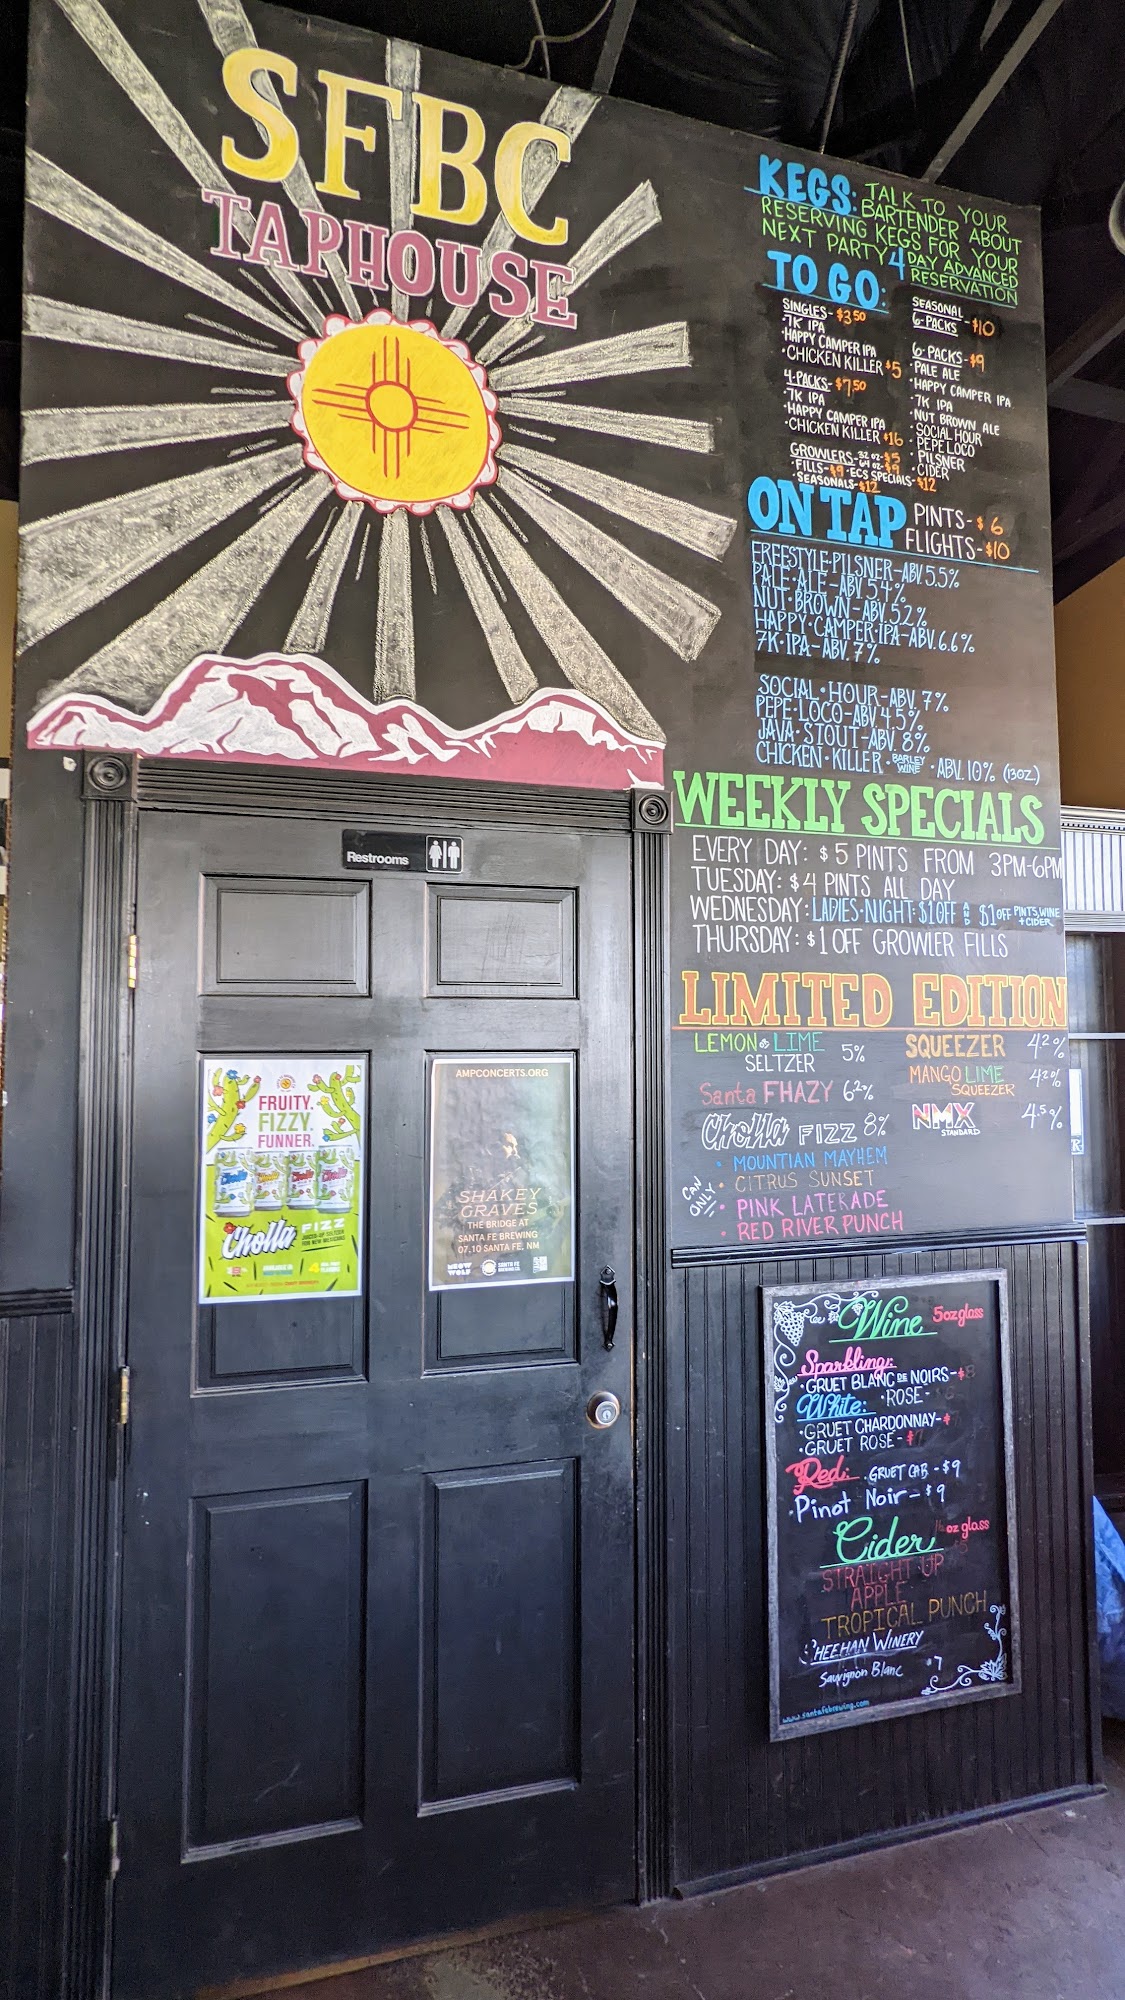 SFBC
TAPHOUSE
KEGS: TALK TO YOUR
BARTENDER ABOUT
RESERVING KEGS FOR YOUR
NEXT PARTY 4 DAY ADVANCED
RESERVATION
TO GO:
SINGLES - $3.50
· 7K IPA
· HAPPY CAMPER IPA
· CHICKEN KILLER $5
4-PACKS - $7.50
· 7K IPA
· HAPPY CAMPER IPA
· CHICKEN KILLER $16
GROWLERS - 32 OZ - $5
64 OZ - $9
· FILLS - $9 · ECS SPECIALS - $12
· SEASONALS - $12
SEASONAL
6-PACKS - $10
6-PACKS - $9
· PALE ALE
· HAPPY CAMPER IPA
· 7K IPA
· NUT BROWN ALE
· SOCIAL HOUR
· PEPE LOCO
· PILSNER
· CIDER
ON TAP PINTS - $6
FLIGHTS - $10
FREESTYLE·PILSNER - ABV. 5.5%
PALE·ALE - ABV 5.4%
NUT·BROWN - ABV. 5.2%
HAPPY·CAMPER·IPA - ABV. 6.6%
7K·IPA - ABV. 7%
SOCIAL·HOUR - ABV. 7%
PEPE·LOCO - ABV 4.5%
JAVA·STOUT - ABV. 8%
CHICKEN·KILLER · BARLEY WINE · ABV. 10% (13OZ)
WEEKLY SPECIALS
EVERY DAY: $5 PINTS FROM 3PM-6PM
TUESDAY: $4 PINTS ALL DAY
WEDNESDAY: LADIES·NIGHT: $1 OFF AND $1 OFF PINTS, WINE + CIDER
THURSDAY: $1 OFF GROWLER FILLS
LIMITED EDITION
LEMON & LIME
SELTZER 5%
Santa FHAZY 6.2%
Cholla FIZZ 8%
CAN ONLY!!
· MOUNTIAN MAYHEM
· CITRUS SUNSET
· PINK LATERADE
· RED RIVER PUNCH
SQUEEZER 4.2%
MANGO LIME
SQUEEZER 4.2%
NMX
STANDARD 4.5%
Restrooms
FRUITY.
FIZZY.
FUNNER.
Cholla FIZZ
AMPCONCERTS.ORG
SHAKEY
GRAVES
THE BRIDGE AT
SANTA FE BREWING
07.10 SANTA FE, NM
MEOW
WOLF
SANTA FE
BREWING CO.
Wine 5oz glass
Sparkling:
· GRUET BLANC DE NOIRS - $8
· ROSE -
White:
· GRUET CHARDONNAY - $
· GRUET ROSE - $
Red: · GRUET CAB - $9
· Pinot Noir - $9
Cider oz glass
STRAIGHT UP
APPLE
TROPICAL PUNCH
SHEEHAN WINERY
Sauvignon Blanc $7
www.santafebrewing.com